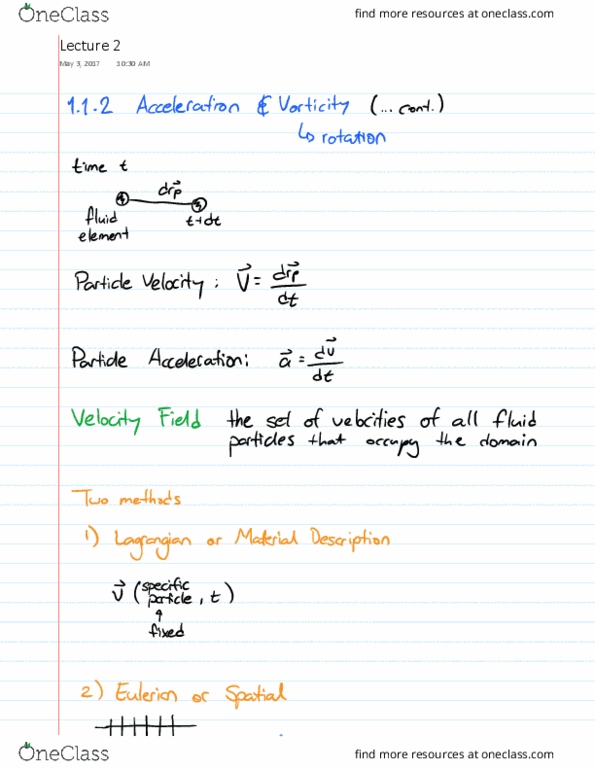 OneClass
find more resources at oneclass.com
Lecture 2
May 3, 2017 10:30 AM
1.1.2 Acceleration & Vorticity (... cont.)
↳ rotation
time t
drp
fluid element
t+dt
Particle Velocity : V = drp/dt
Particle Acceleration: a = dv/dt
Velocity Field the set of velocities of all fluid
particles that occupy the domain
Two methods
1) Lagrangian or Material Description
v (specific particle, t)
↑
fixed
2) Eulerian or Spatial
OneClass
find more resources at oneclass.com